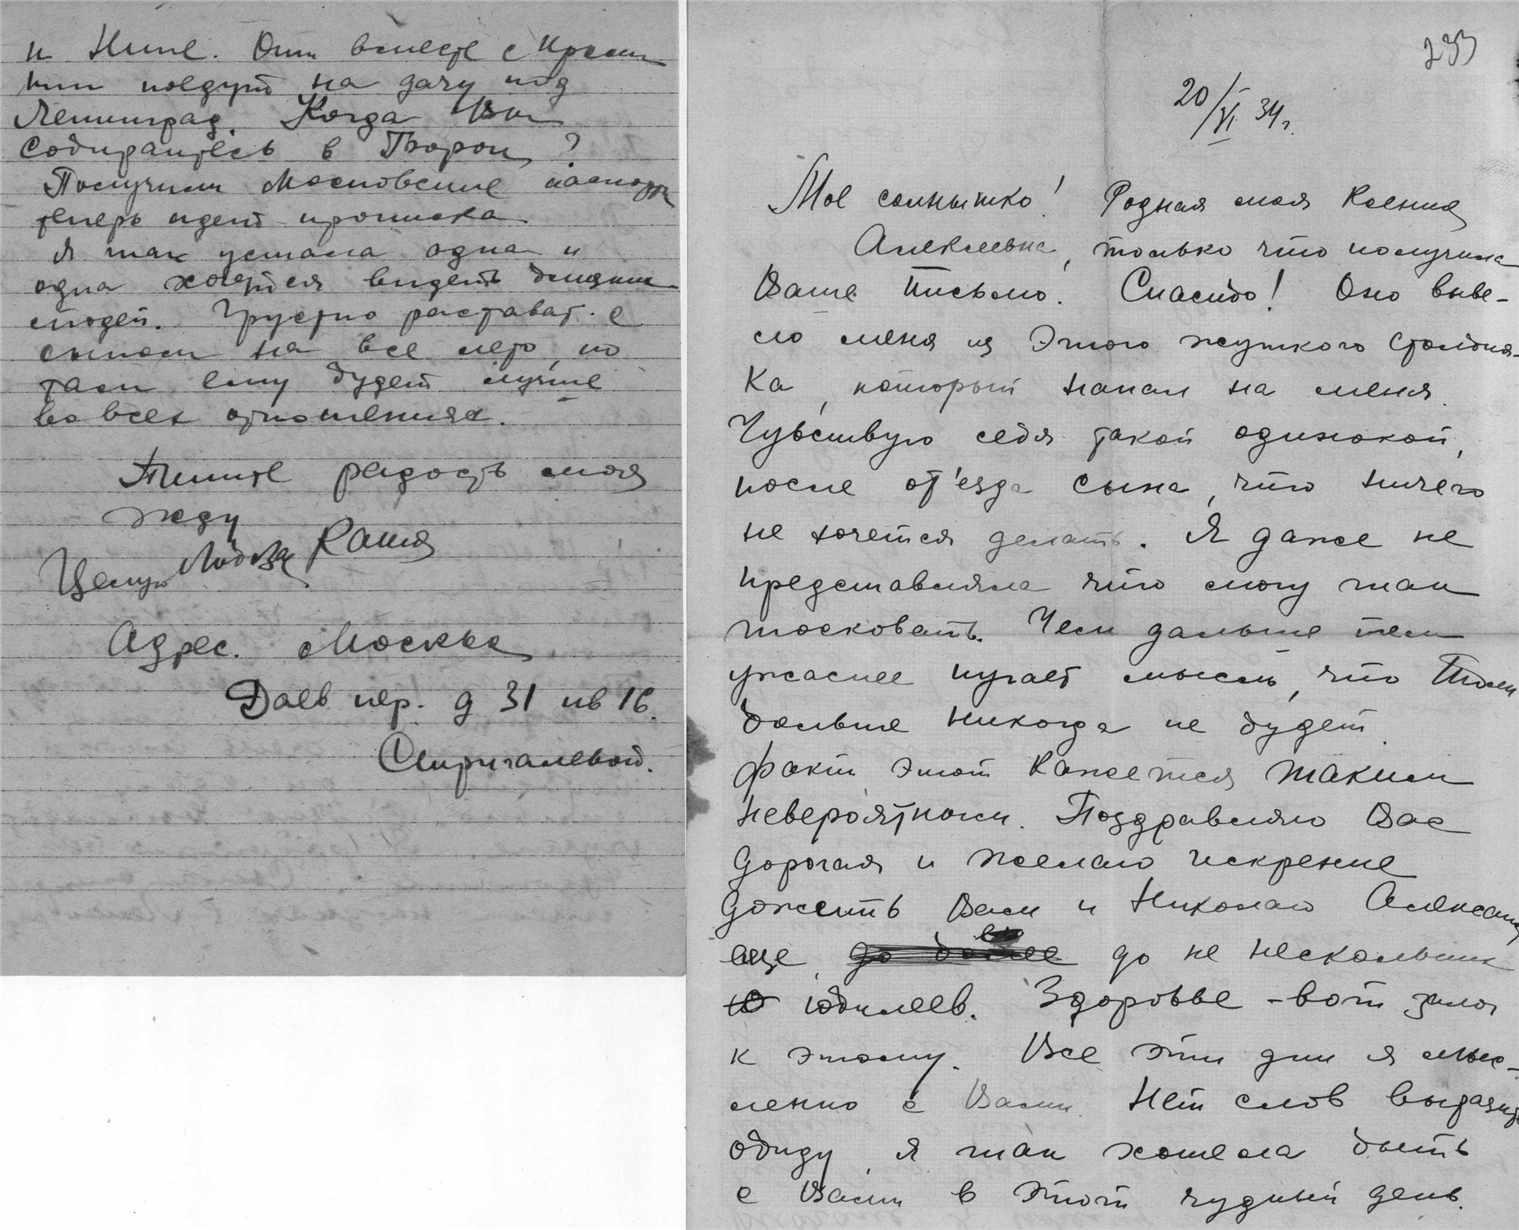 и Нине. Они вместе с
ними поедут на дачу под
Ленинград. Когда Вы
собираетесь в Борок?
Получили Московские паспорта
теперь идет прописка.
Я так устала одна и
одна хочется видеть близких
людей. Грустно расстават. с
сыном на все лето, но
там ему будет лучше
во всех отношениях.
Пишите радость моя
жду
Целую Любящ Ваша
Адрес. Москва
Даев пер. д 31 кв 16.
233
20/VI 34 г.
Мое солнышко! Родная моя Ксения
Алексеевна, только что получила
Ваше письмо. Спасибо! Оно выве-
ло меня из этого жуткого столбня-
ка, который напал на меня.
Чувствую себя такой одинокой,
после от'езда сына, что ничего
не хочется делать. Я даже не
представляла что могу так
тосковать. Чем дальше тем
ужаснее пугает мысль, что Толи
больше никогда не будет.
Факт этот кажется таким
невероятным. Поздравляю Вас
дорогая и желаю искренне
дожить Вам и Николаю Алексан
еще до более до не нескольких
ю юбилеев. Здоровье - вот залог
к этому. Все эти дни я мыс-
ленно с Вами. Нет слов выразить
обиду, я так хотела быть
с Вами в этот чудный день.